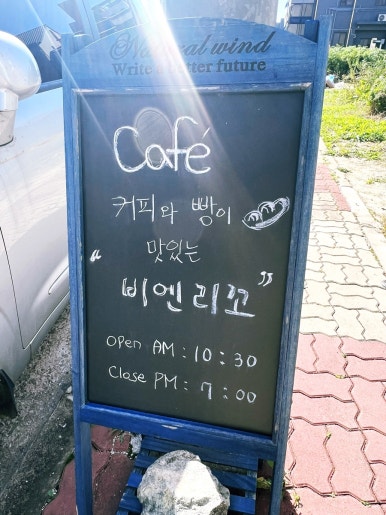 Natural wind
Write a better future
Café
커피와 빵이
맛있는
"비엔리꼬"
Open AM : 10 : 30
Close PM : 7 : 00